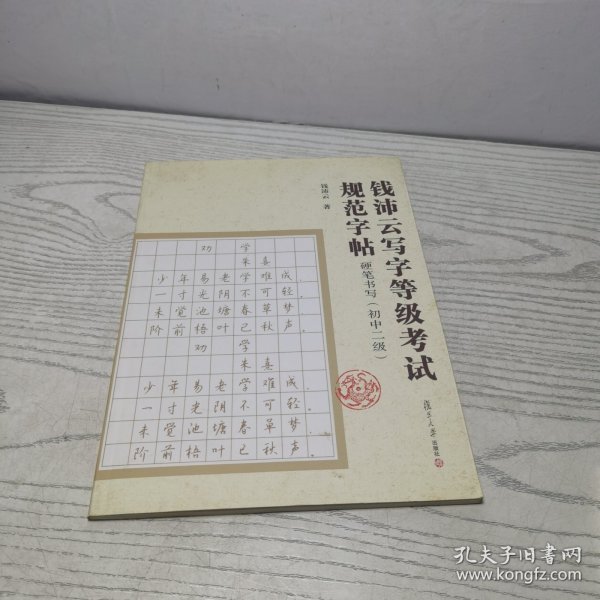 钱沛云写字等级考试
规范字帖
硬笔书写（初中二级）
钱沛云 著
劝学
朱熹
少年易老学难成，
一寸光阴不可轻。
未觉池塘春草梦，
阶前梧叶已秋声。
劝学
朱熹
少年易老学难成，
一寸光阴不可轻。
未觉池塘春草梦，
阶前梧叶已秋声。
復旦大學出版社
孔夫子旧书网
www.kongfz.com